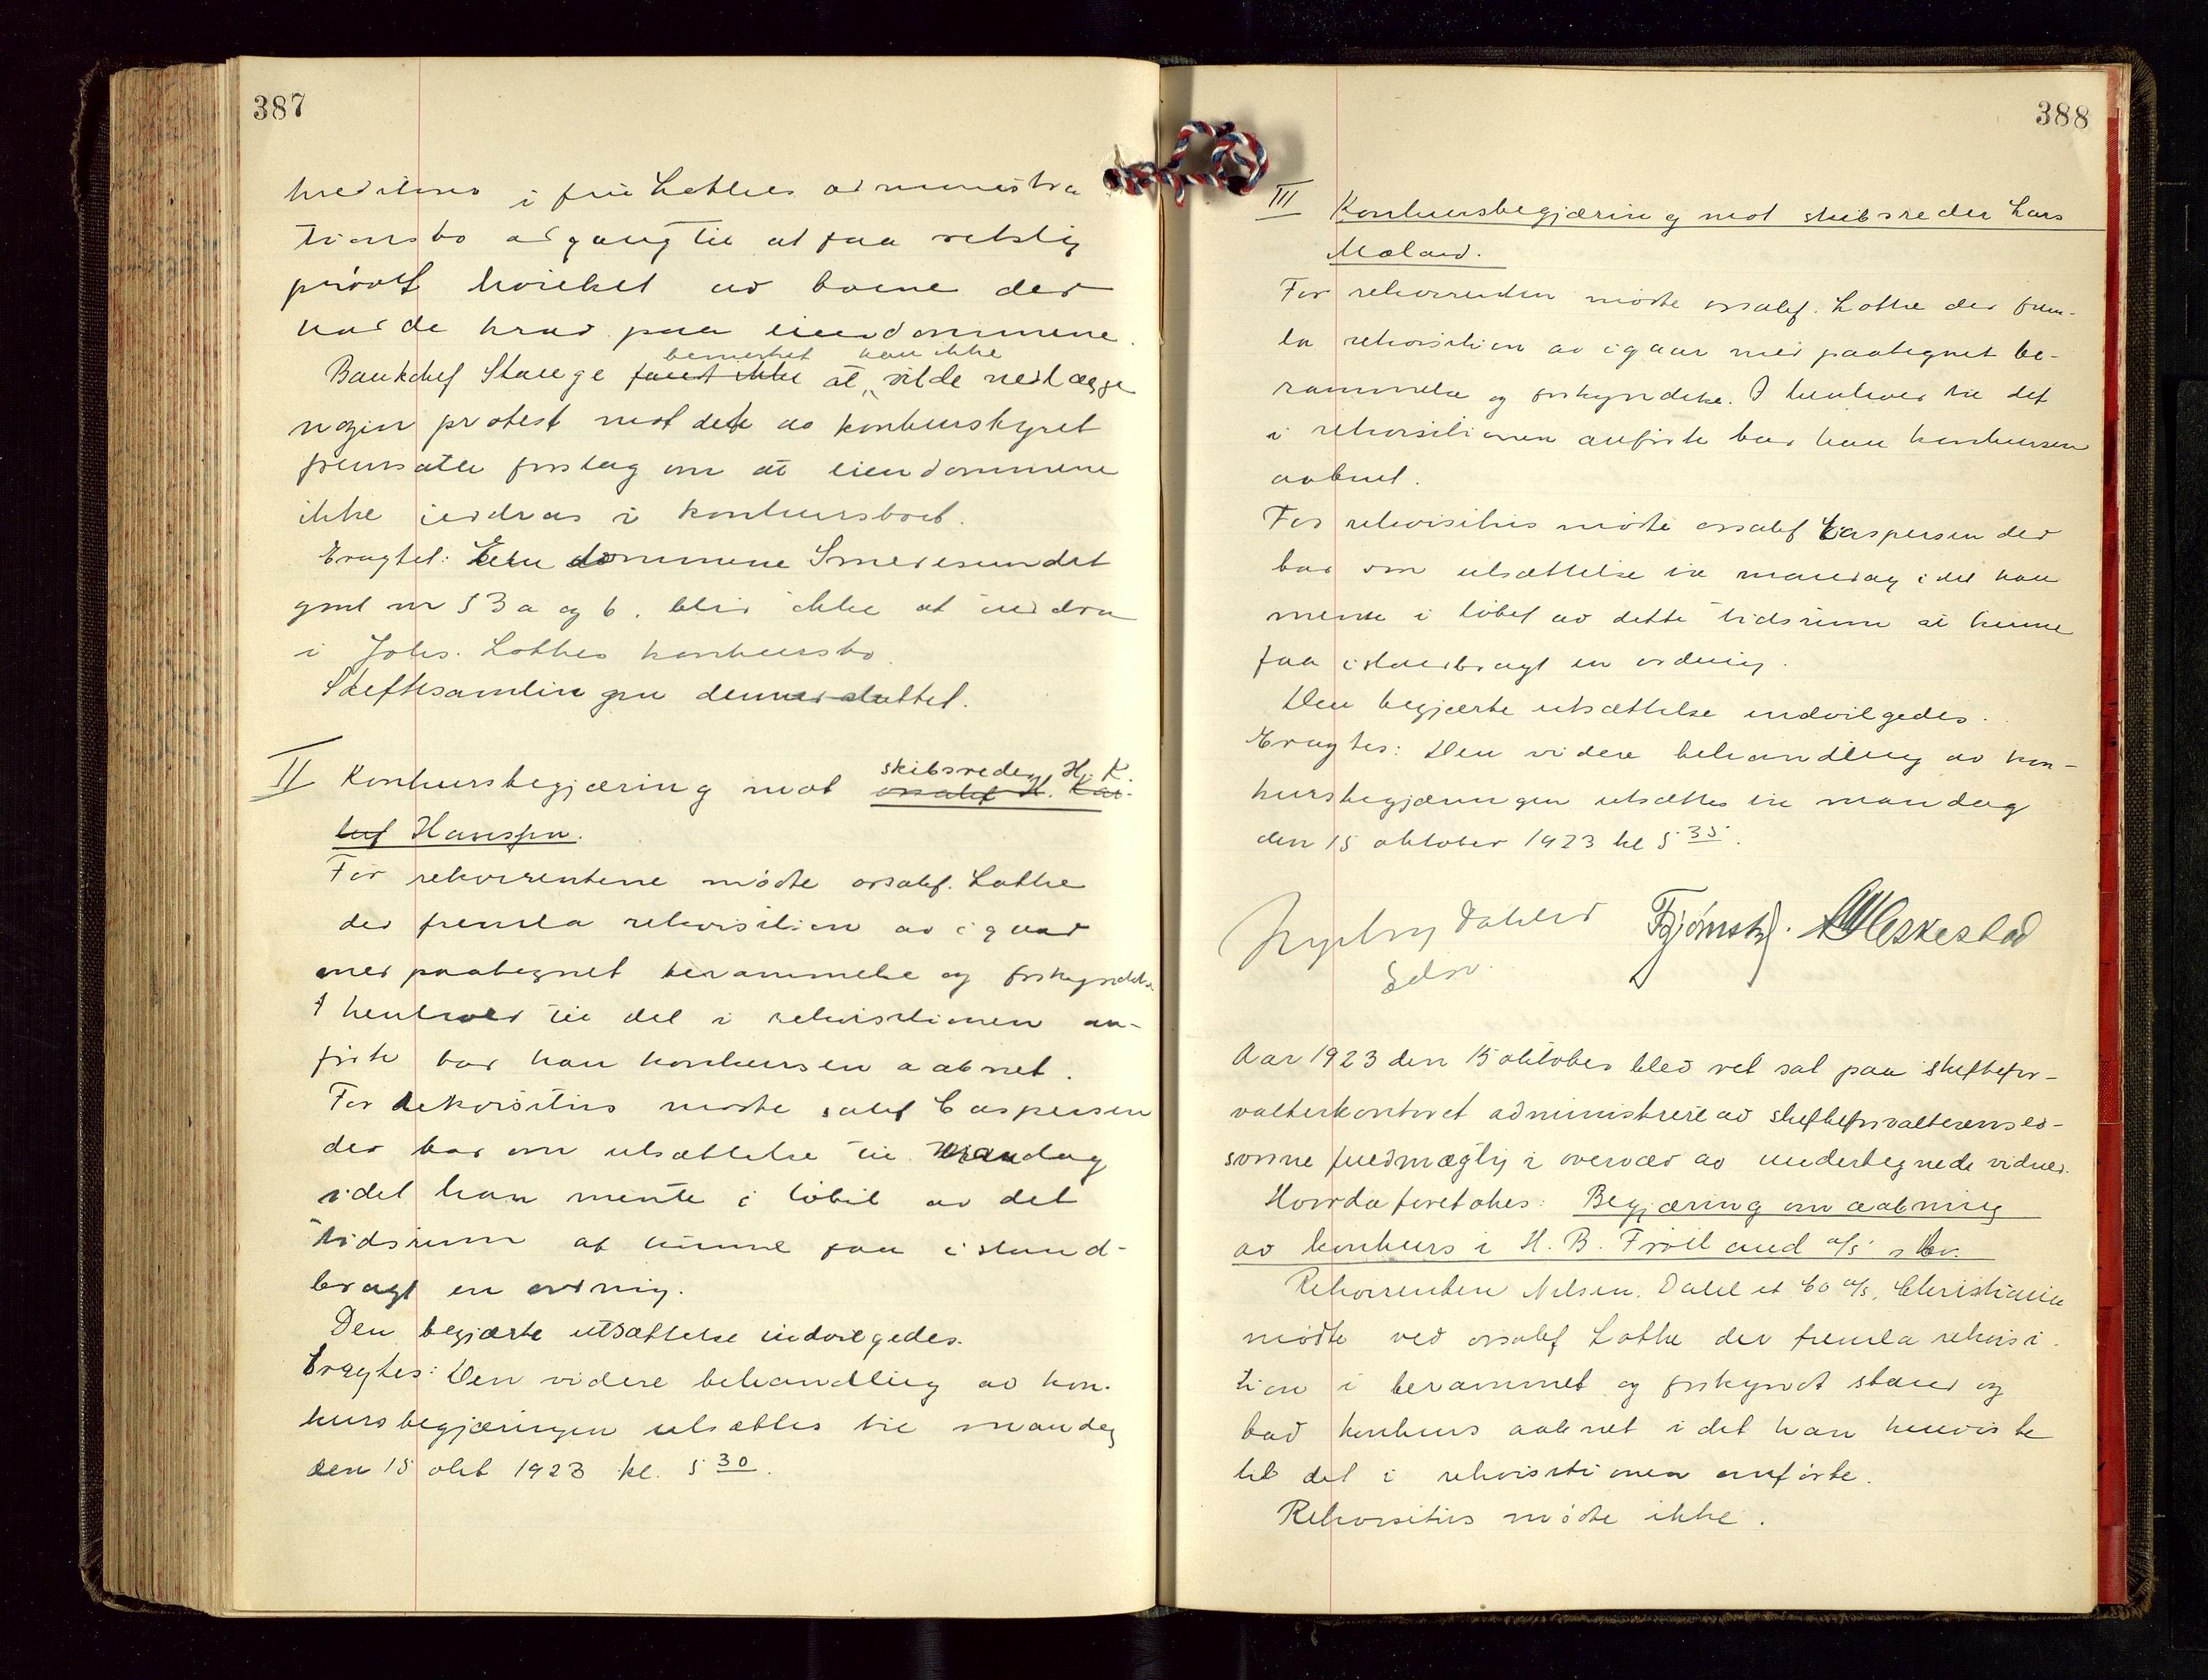 387
kreditorer i fru Lothes administra
tionsbo adgang til at faa retslig
prøvet hvilket av boene der
havde krav paa eiendommene.
bemerket han ikke
Bankchef Stange fandt ikke at vilde nedlægge
nogen protest mot dette av konkursstyret
fremsatte forslag om at eiendommene
ikke inddras i konkursboet.
Eragtet: Eiendommene Smedesundet
gml nr 53 a og b. blir ikke at inddra
i Johs. Lothes konkursbo.
Skiftesamlingen dermed sluttet.
II Konkursbegjæring mot skibsreder H. K.
orsakf H. Kai-
luf Hanssen.
For rekvirentene møtte orsakf. Lothe
der fremla rekvisition av igaar
med paategnet berammelse og forkyndelse
I henhold til det i rekvisitionen an-
førte bad han konkursen aabnet.
For rekvisitus møtte sakf Caspersen
der bad om utsættelse til mandag
idet han mente i løbet av det
tidsrum at kunne faa istand-
bragt en ordning.
Den begjærte utsættelse indvilgedes.
Eragtes: Den videre behandling av kon-
kursbegjæringen utsættes til mandag
den 15 okt 1923 kl. 5 30.
388
III Konkursbegjæring mot skibsreder Lars
Mæland.
For rekvirenten møtte orsakf. Lothe der frem-
la rekvisition av igaar med paategnet be-
rammelse og forkyndelse. I henhold til det
i rekvisitionen anførte bad han konkursen
aabnet.
For rekvisitus møtte orsakf Caspersen der
bad om utsættelse til mandag idet han
mente i løbet av dette tidsrum at kunne
faa istandbragt en ordning.
Den begjærte utsættelse indvilgedes.
Eragtes: Den videre behandling av kon-
kursbegjæringen utsættes til mandag
den 15 oktober 1923 kl 5 35.
Dahler
Edsv.
Aar 1923 den 15 oktober blev ret sat paa skiftefor-
valterkontoret administrert av skifteforvalterens ed-
svorne fuldmægtig i overvær av undertegnede vidner.
Hvorda foretokes: Begjæring om aabning
av konkurs i H. B. Frøiland a/s
Rekvirenten Nilsen, Dahl et Co a/s, Christiania
møtte ved orsakf Lothe der fremla rekvisi-
tion i berammet og forkyndt stand og
bad konkurs aabnet idet han henviste
til det i rekvisitionen anførte.
Rekvisitus møtte ikke.